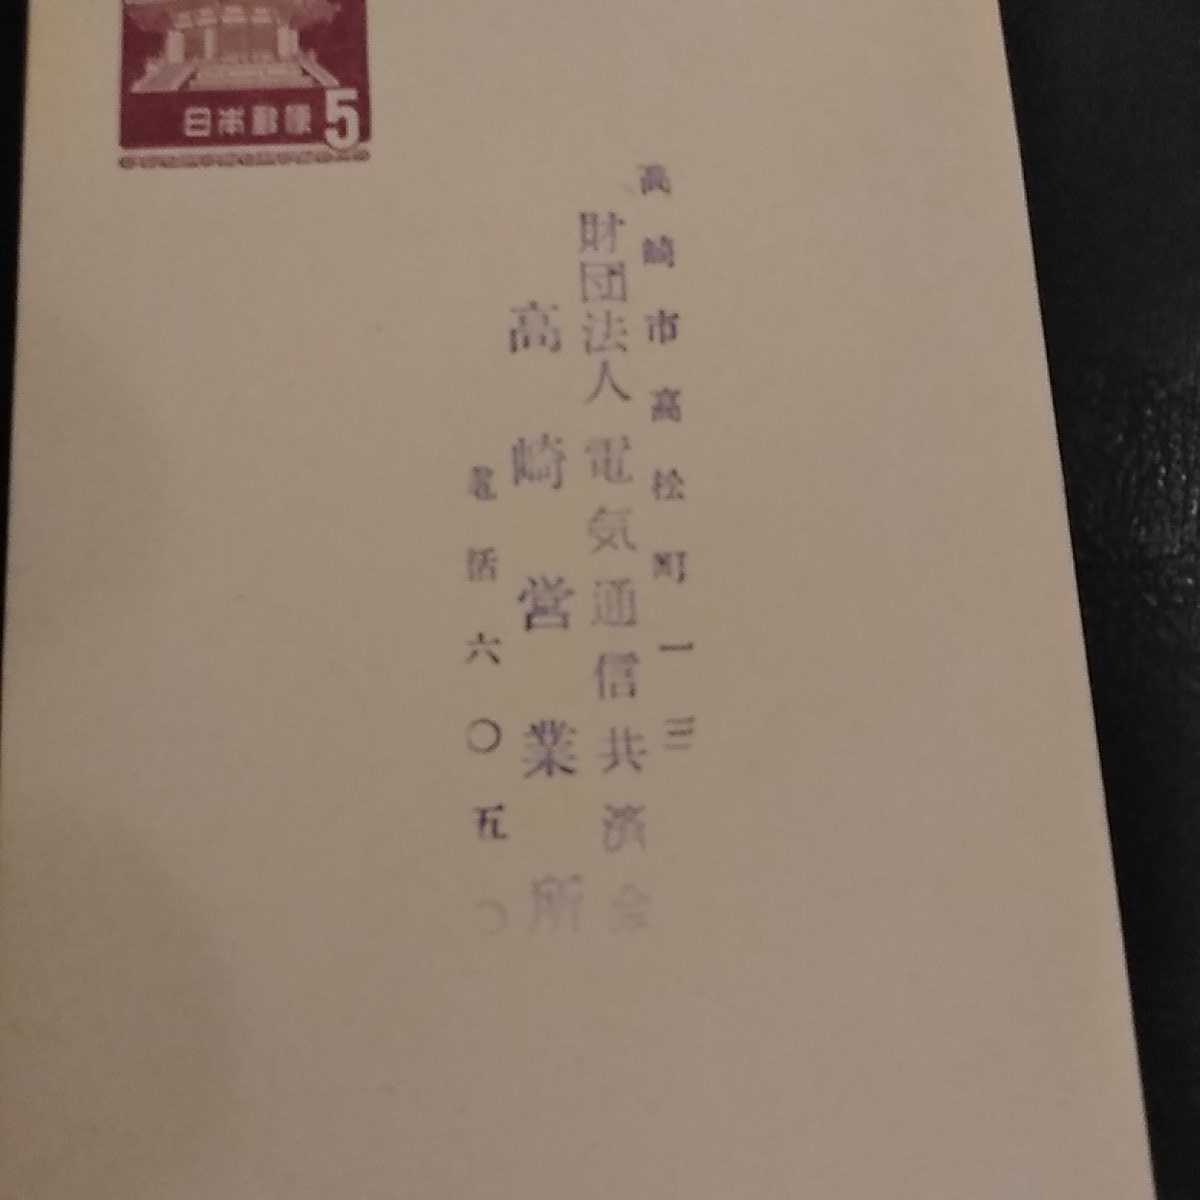 日本郵便 5
高崎市高松町一三
財団法人電気通信共済会
高崎営業所
電話六〇五〇